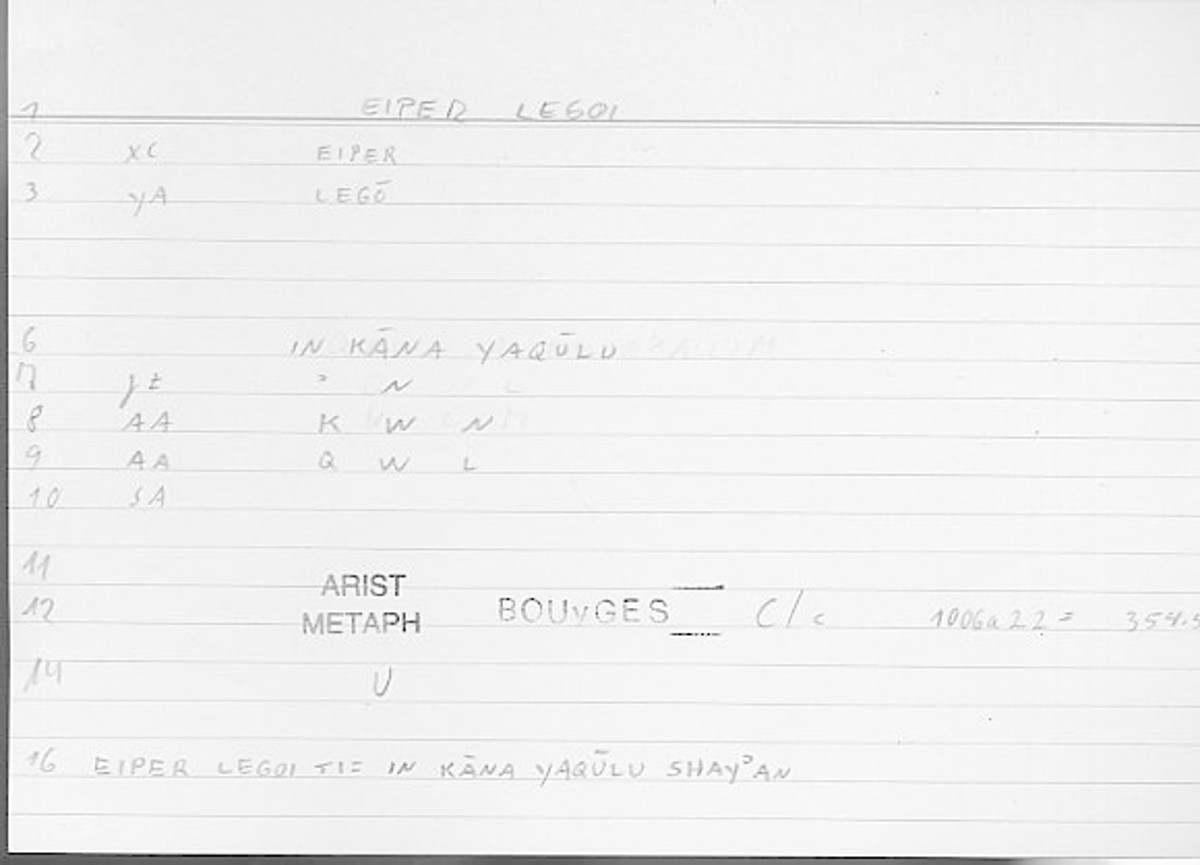 1 EIPER LEGOI
2 XC EIPER
3 yA LEGŌ
6 IN KĀNA YAQŪLU
7 jz ʾ N
8 AA K W N
9 AA Q W L
10 SA
11
ARIST
12 METAPH BOUyGES C/c 1006a22 = 354.5
14 U
16 EIPER LEGOI TI = IN KĀNA YAQŪLU SHAYʾAN